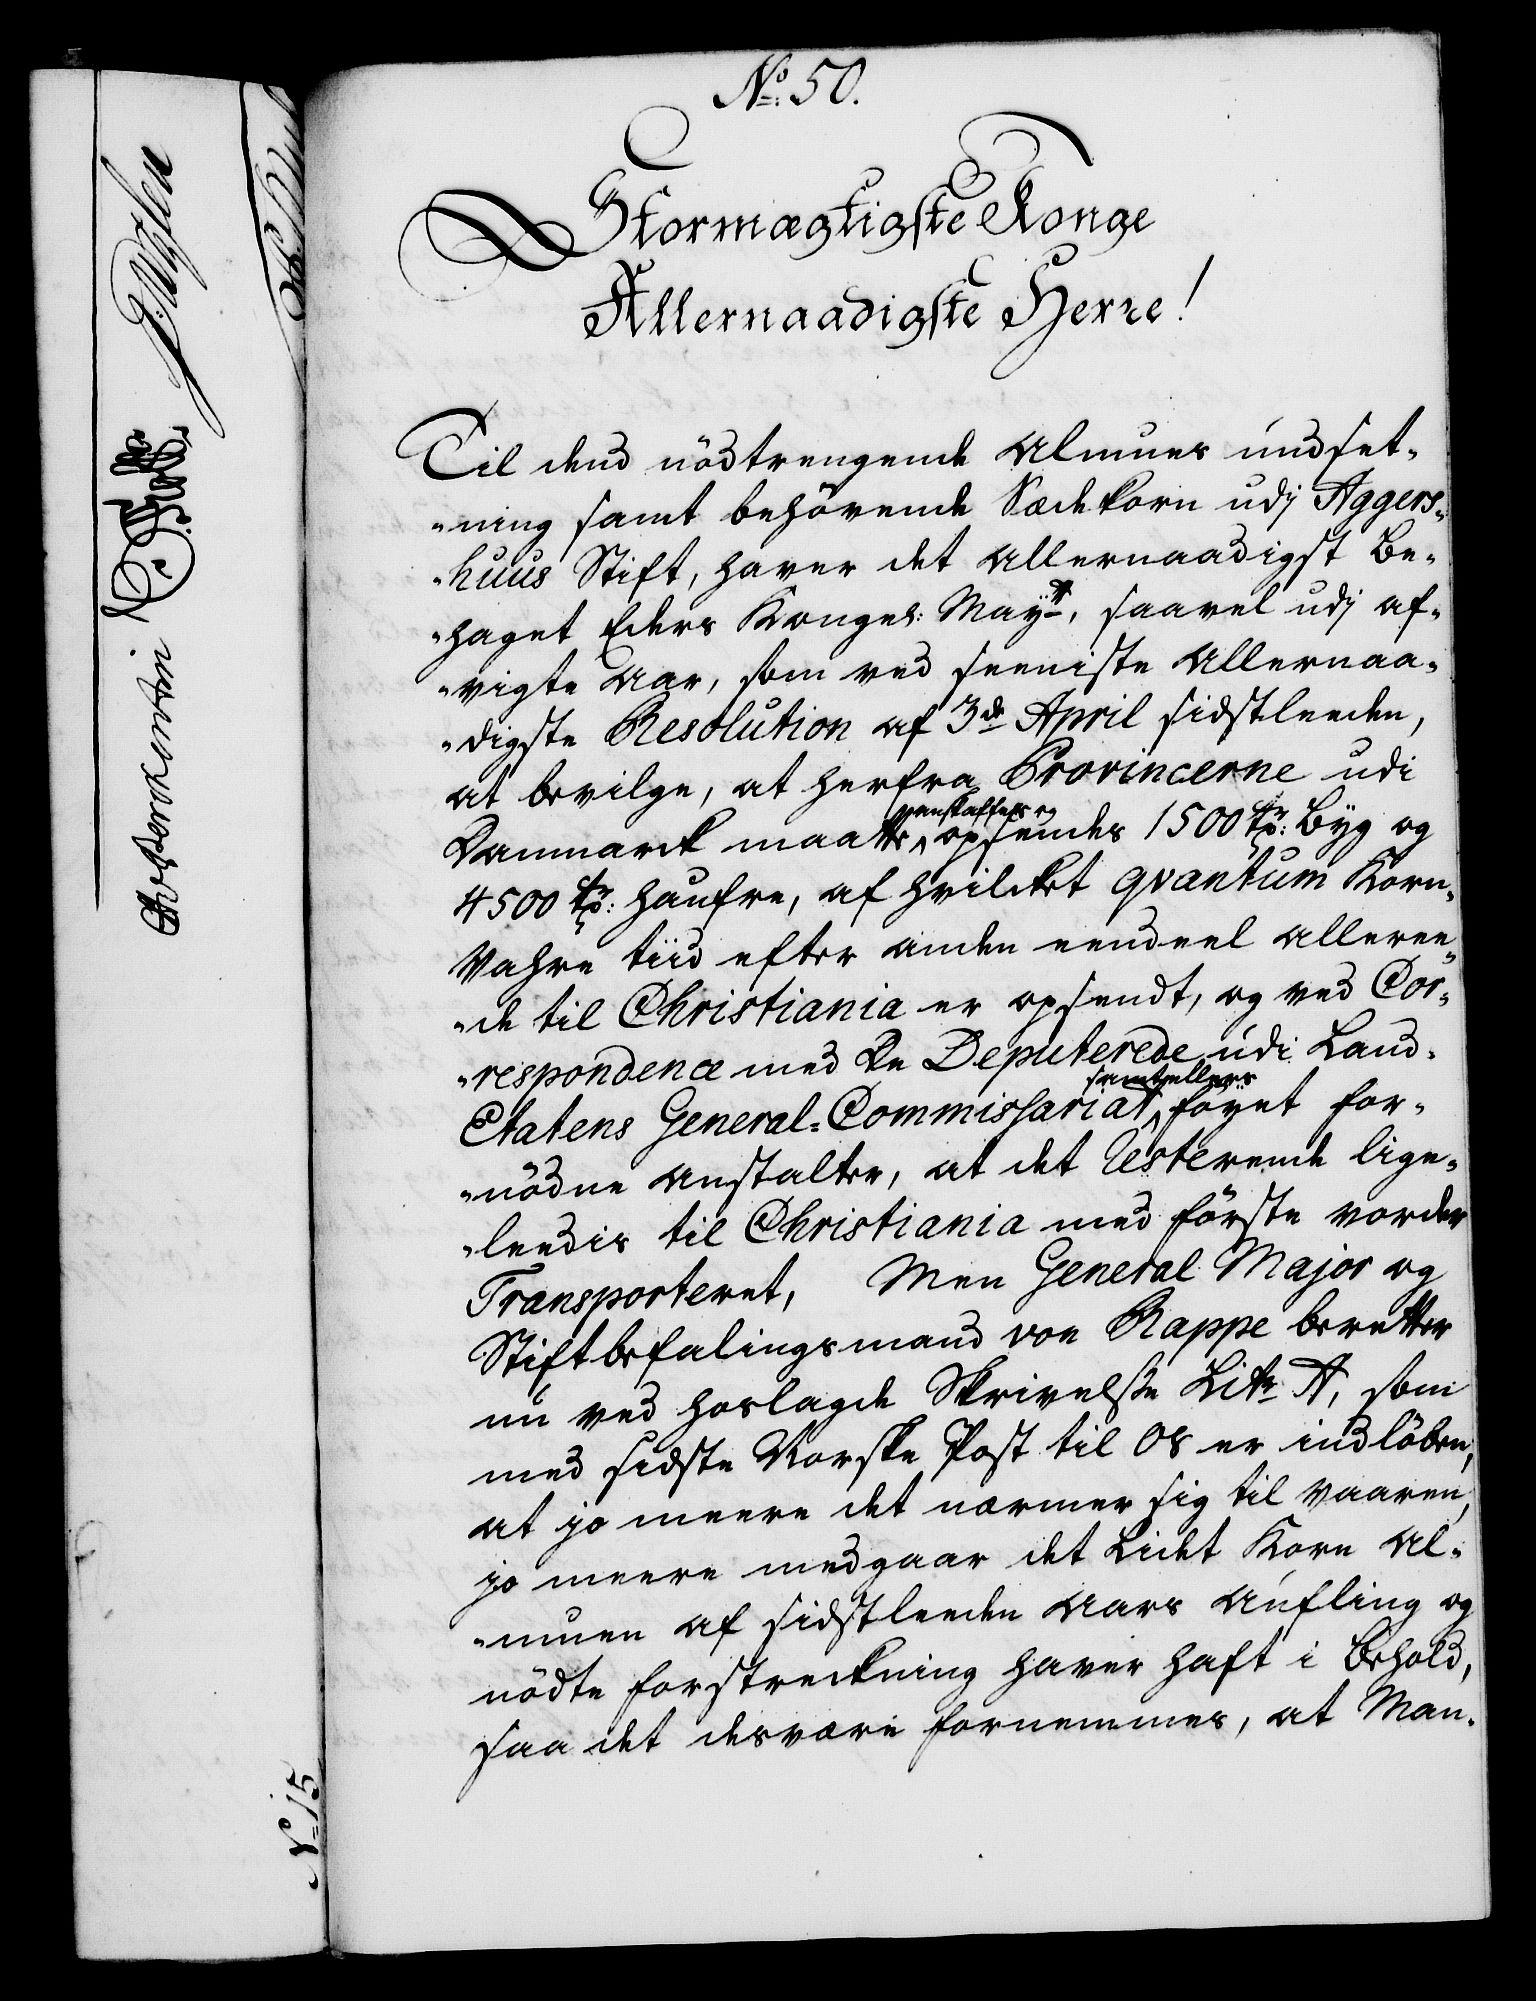 No: 50.
Stormægtigste Konge
Allernaadigste Herre!
Til dend nödtrengende Almues undset-
-ning samt behövende Sædekorn udj Aggers-
-huus Stift, haver det Allernaadigst Be-
-haget Eders Kongel: Mayt:, saavel udj af-
-vigte Aar, som ved seeniste Allernaa-
-digste Resolution af 3de April sidstleeden,
at bevilge, at herfra Provincerne udi
Danmarck maatte anskaffes og opsendes 1500 tr: Byg og
4500 tr: Haufre, af hvilcket qvantum Korn-
Vahre tiid efter anden eendeel alleree-
-de til Christiania er opsendt, og ved Cor-
-respondence med De Deputerede udi Land-
Etatens General-Commissariat samt ellers föyet for-
-nödne Anstalter, at det Resterende lige-
-leedis til Christiania med förste vorder
Transporteret, Men General Major og
Stiftbefalingsmand von Rappe beretter
nu ved hoslagde Skrivelse Litr A, som
med sidste Norske Post til Os er indlöben,
at jo meere det nærmer sig til Vaaren,
jo meere medgaar det Lidet Korn Al-
-muen af sidstleeden Aars Aufling og
nödte forstreckning haver haft i Behold,
saa det desvære fornemmes, at Man-
No 15